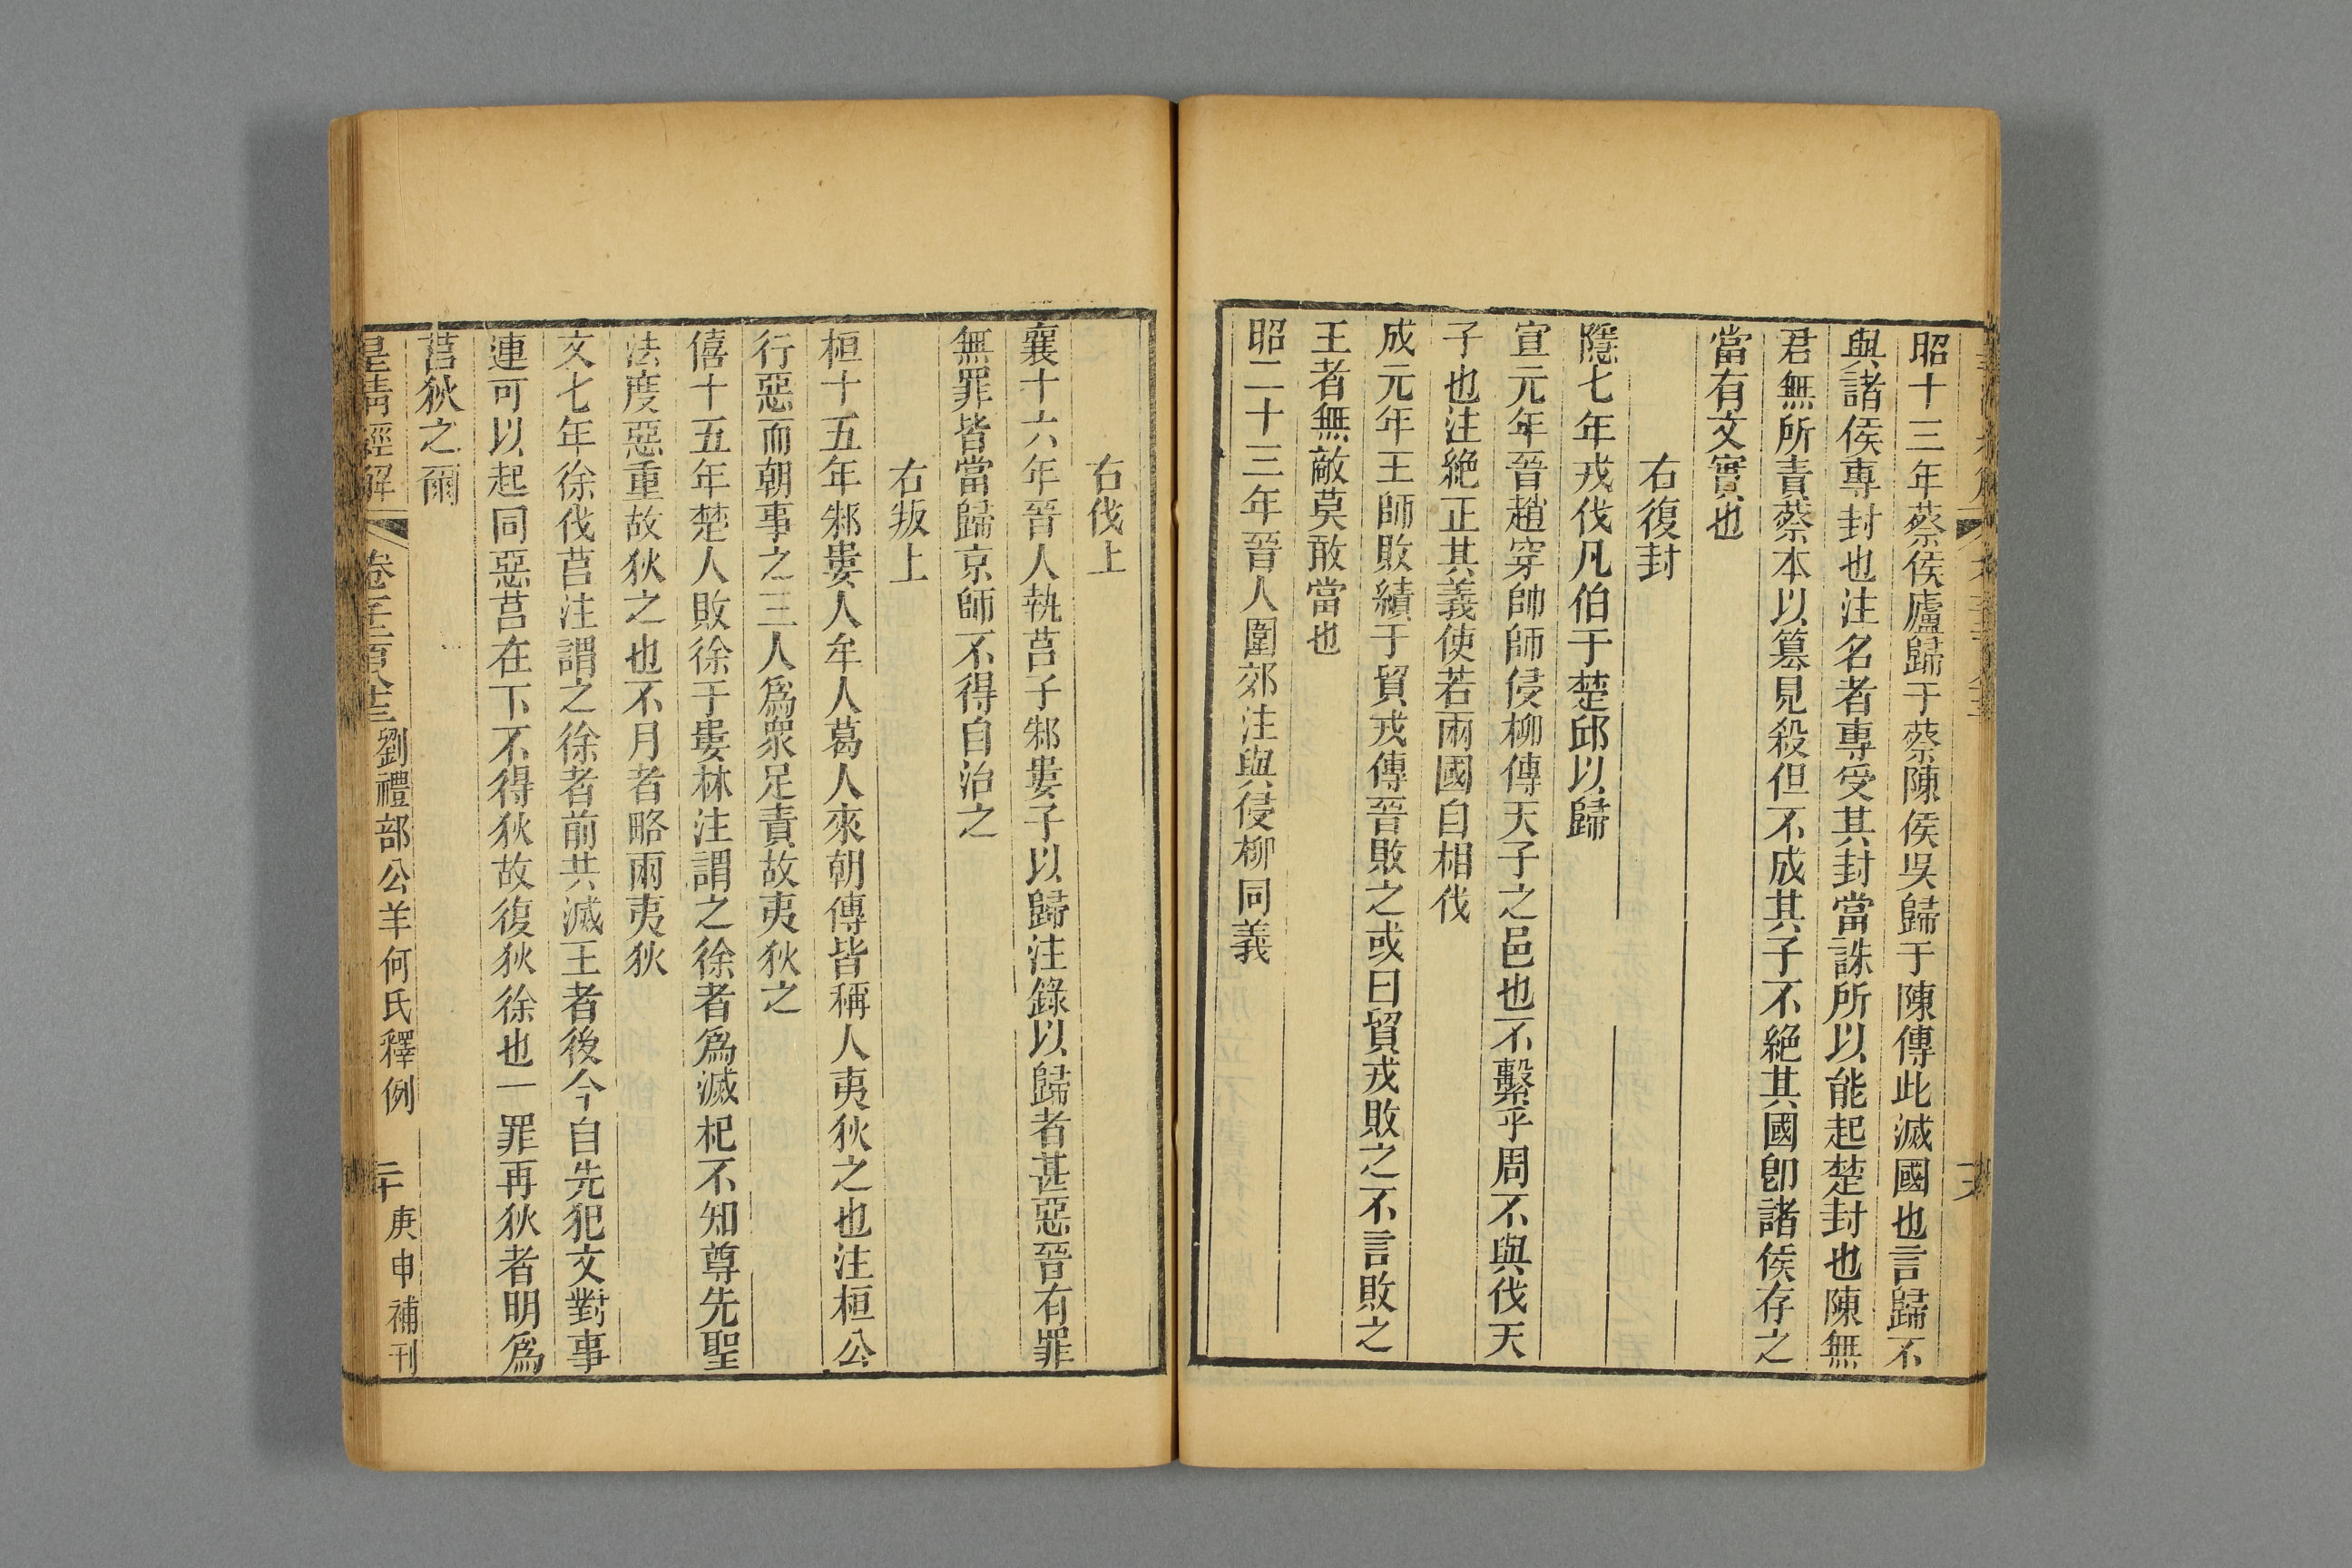 昭十三年蔡侯廬歸于蔡陳侯吳歸于陳傳此滅國也言歸不
與諸侯專封也注名者專受其封當誅所以能起楚封也陳無
君無所責蔡本以篡見殺但不成其子不絕其國卽諸侯存之
當有文實也
右復封
隱七年戎伐凡伯于楚邱以歸
宣元年晉趙穿帥師侵柳傳天子之邑也不繫乎周不與伐天
子也注絕正其義使若兩國自相伐
成元年王師敗績于貿戎傳晉敗之或曰貿戎敗之不言敗之
王者無敵莫敢當也
昭二十三年晉人圍郊注與侵柳同義
右伐上
襄十六年晉人執莒子邾婁子以歸注錄以歸者甚惡晉有罪
無罪皆當歸京師不得自治之
右叛上
桓十五年邾婁人牟人葛人來朝傳皆稱人夷狄之也注桓公
行惡而朝事之三人爲眾足責故夷狄之
僖十五年楚人敗徐于婁林注謂之徐者爲滅杞不知尊先聖
法度惡重故狄之也不月者略兩夷狄
文七年徐伐莒注謂之徐者前共滅王者後今自先犯文對事
連可以起同惡莒在下不得狄故復狄徐也一罪再狄者明爲
莒狄之爾
皇清經解 卷千二百八十三 劉禮部公羊何氏釋例 二十 庚申補刊